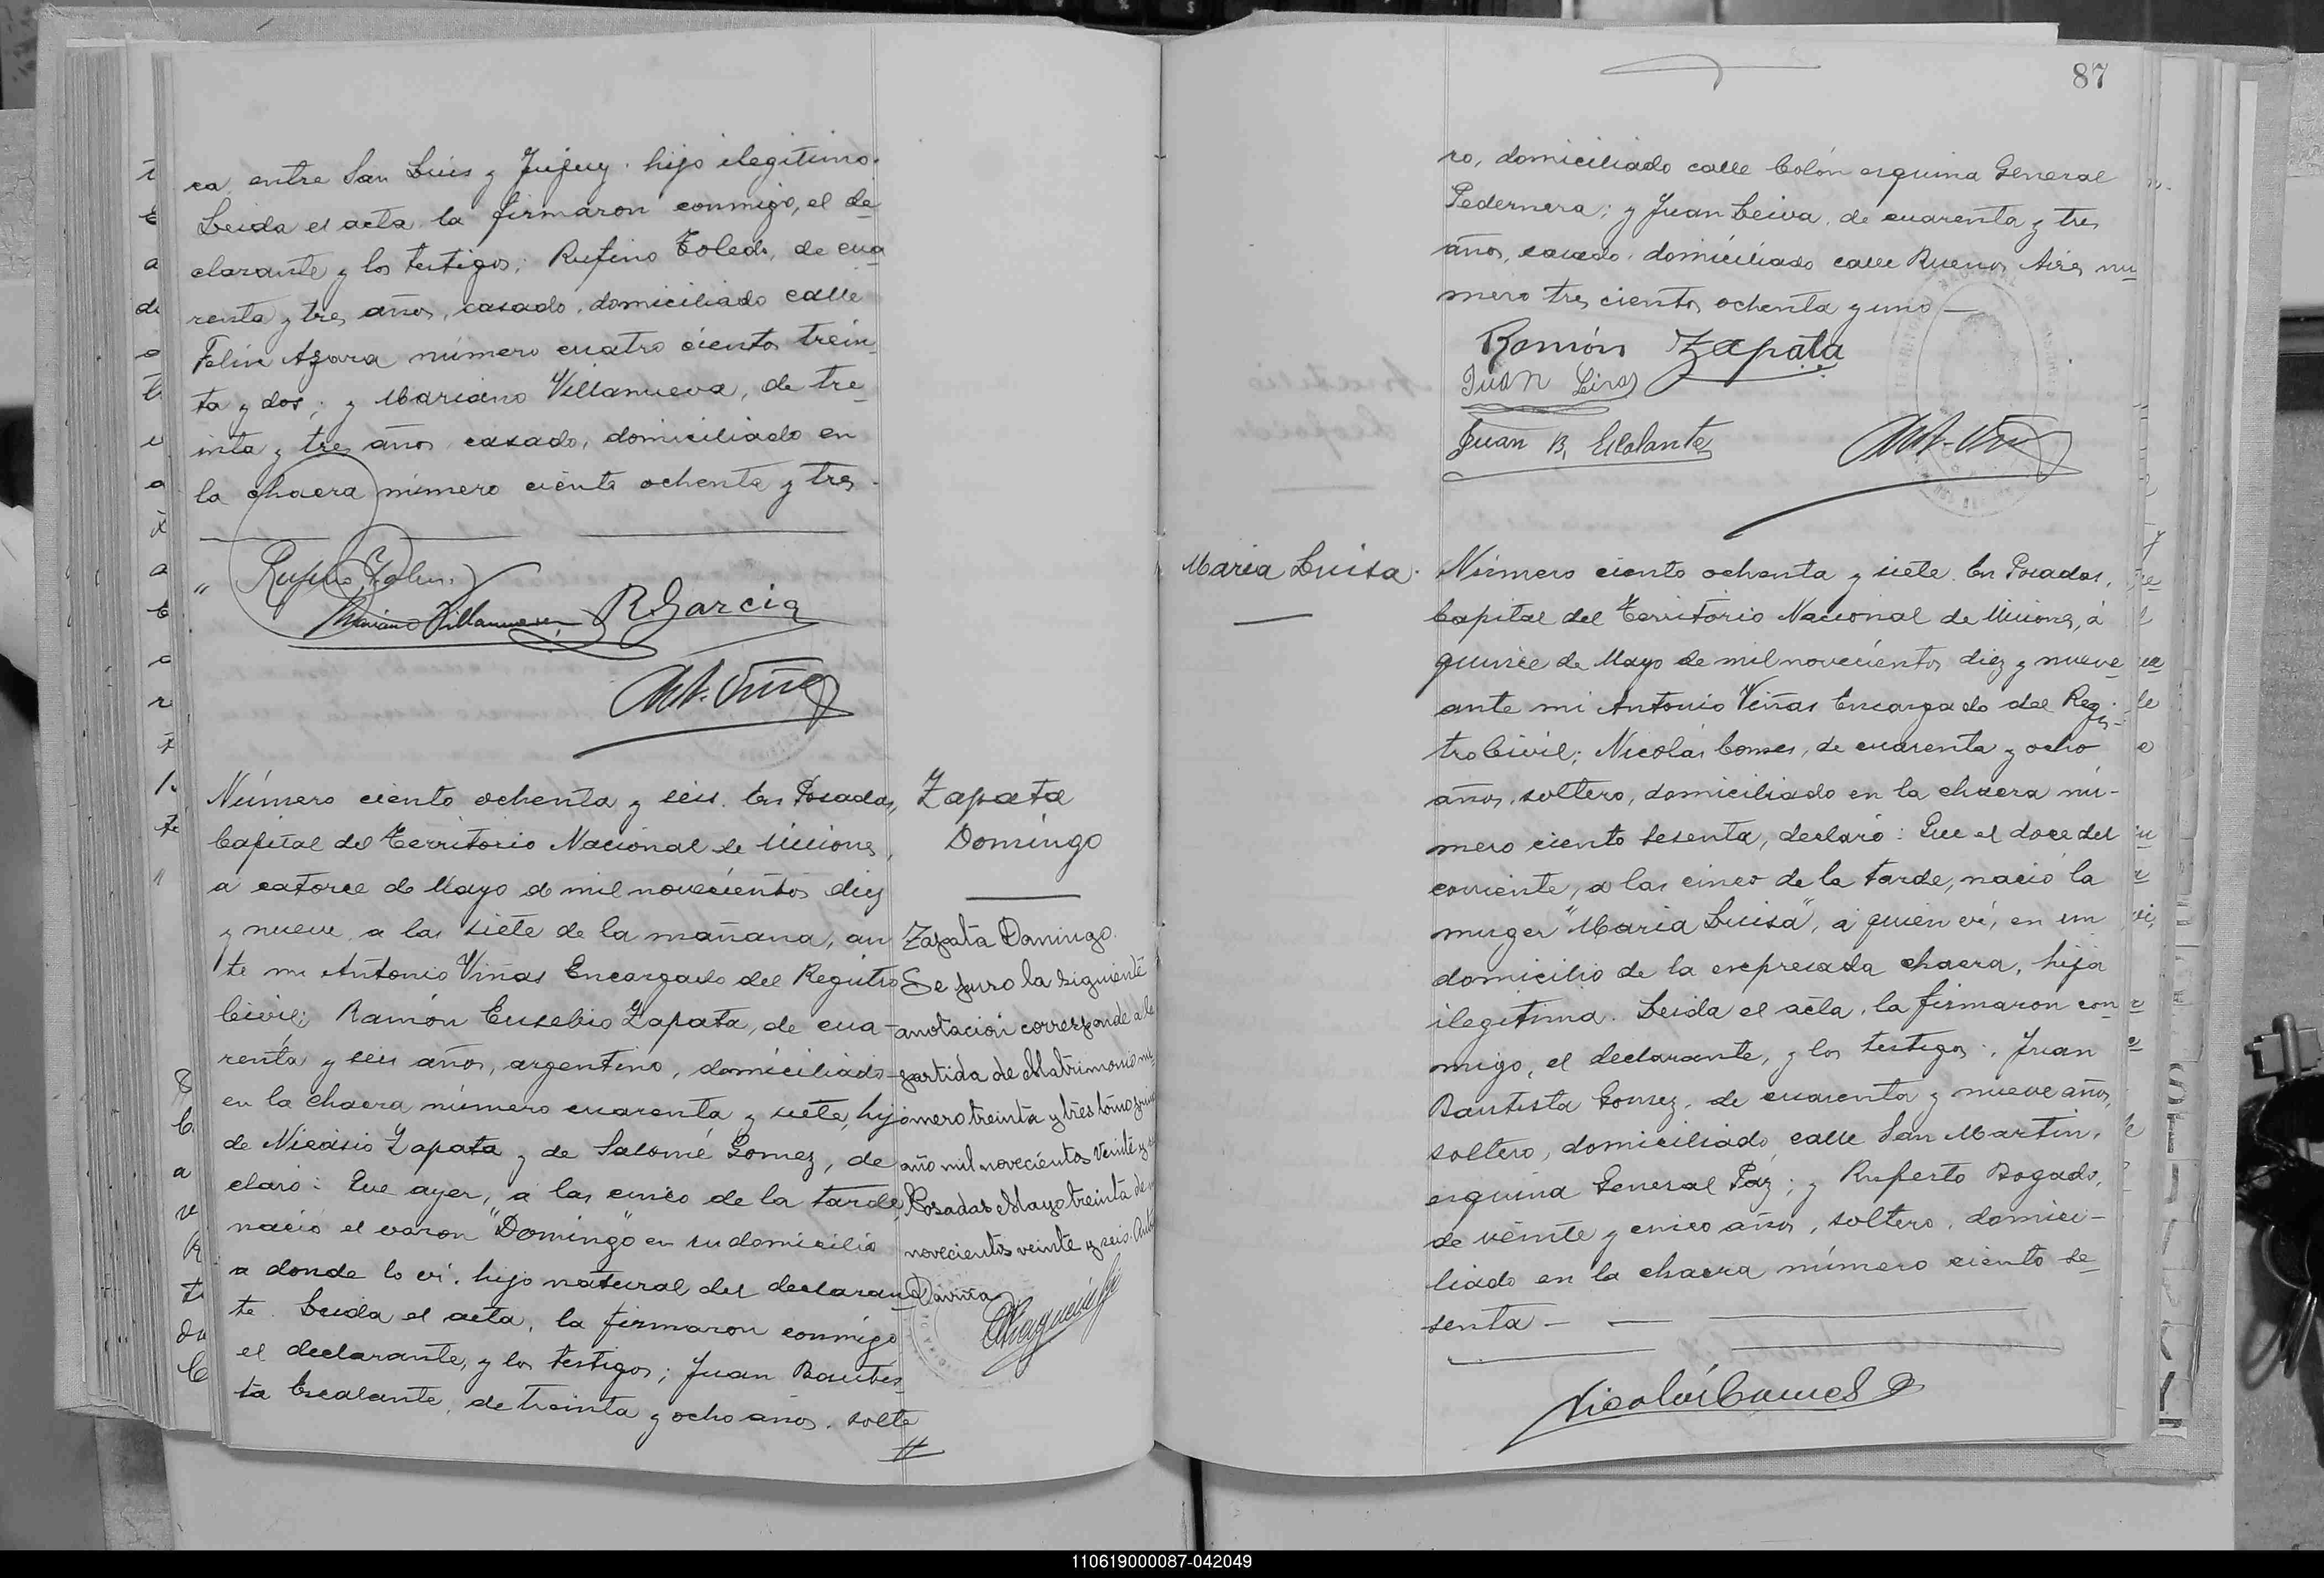 ca entre San Luis y Jujuy. hijo ilegitimo.
Leida el acta la firmaron conmigo, el de
clarante y los testigos; Rufino Toledo, de cua
renta y tres años, casado, domiciliado calle
Felix Azara número cuatro cientos trein
ta y dos; y Mariano Villanueva, de tre
inta y tres años casado, domiciliado en
la chacra número ciento ochenta y tres.
Mariano Villanueva R Garcia
Ant. Viñas
Número ciento ochenta y seis. En Posadas,
Capital del Territorio Nacional de Misiones,
a catorce de Mayo de mil novecientos diez
y nueve a las siete de la mañana, an
te mi Antonio Viñas Encargado del Registro
Civil; Ramón Eusebio Zapata, de cua-
renta y seis años, argentino, domiciliado
en la chacra número cuarenta y siete, hijo
de Nicasio Zapata y de Salomé Gomez, de
claró: Que ayer, a las cinco de la tarde
nació el varon "Domingo" en su domicilio
a donde lo vi. hijo natural del declaran
te. Leida el acta, la firmaron conmigo
el declarante, y los testigos; Juan Bautis
ta Escalante, de treinta y ocho años. solte
Zapata
Domingo
Zapata Domingo.
Se puso la siguiente
anotación corresponde a la
partida de Matrimonio nú
mero treinta y tres tomo
año mil novecientos veinte y
Posadas Mayo treinta de
novecientos veinte y seis.
87
ro, domiciliado calle Colón esquina General
Pedernera; y Juan Leiva, de cuarenta y tres
años, casado, domiciliado calle Buenos Aires nu
mero tres cientos ochenta y uno —
Ramón Zapata
Juan Leiva
Juan B. Escalante
Ant. Viñas
Maria Luisa.
Número ciento ochenta y siete. En Posadas,
Capital del Territorio Nacional de Misiones, á
quince de Mayo de mil novecientos diez y nueve
ante mi Antonio Viñas Encargado del Regis-
tro Civil; Nicolás Comes, de cuarenta y ocho
años, soltero, domiciliado en la chacra nú-
mero ciento sesenta, declaró: Que el doce del
corriente, a las cinco de la tarde, nació la
muger "Maria Luisa", a quien vi, en un
domicilio de la expresada chacra, hija
ilegitima. Leida el acta, la firmaron con
migo, el declarante, y los testigos; Juan
Bautista Gomez, de cuarenta y nueve años,
soltero, domiciliado, calle San Martin,
esquina General Paz; y Ruperto Bogado,
de veinte y cinco años, soltero, domici-
liado en la chacra número ciento se
senta —
Nicolás Comes
110619000087-042049